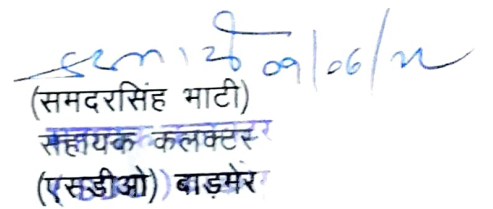 09/06/22
(समदरसिंह भाटी)
सहायक कलक्टर
(एसडीओ) बाड़मेर